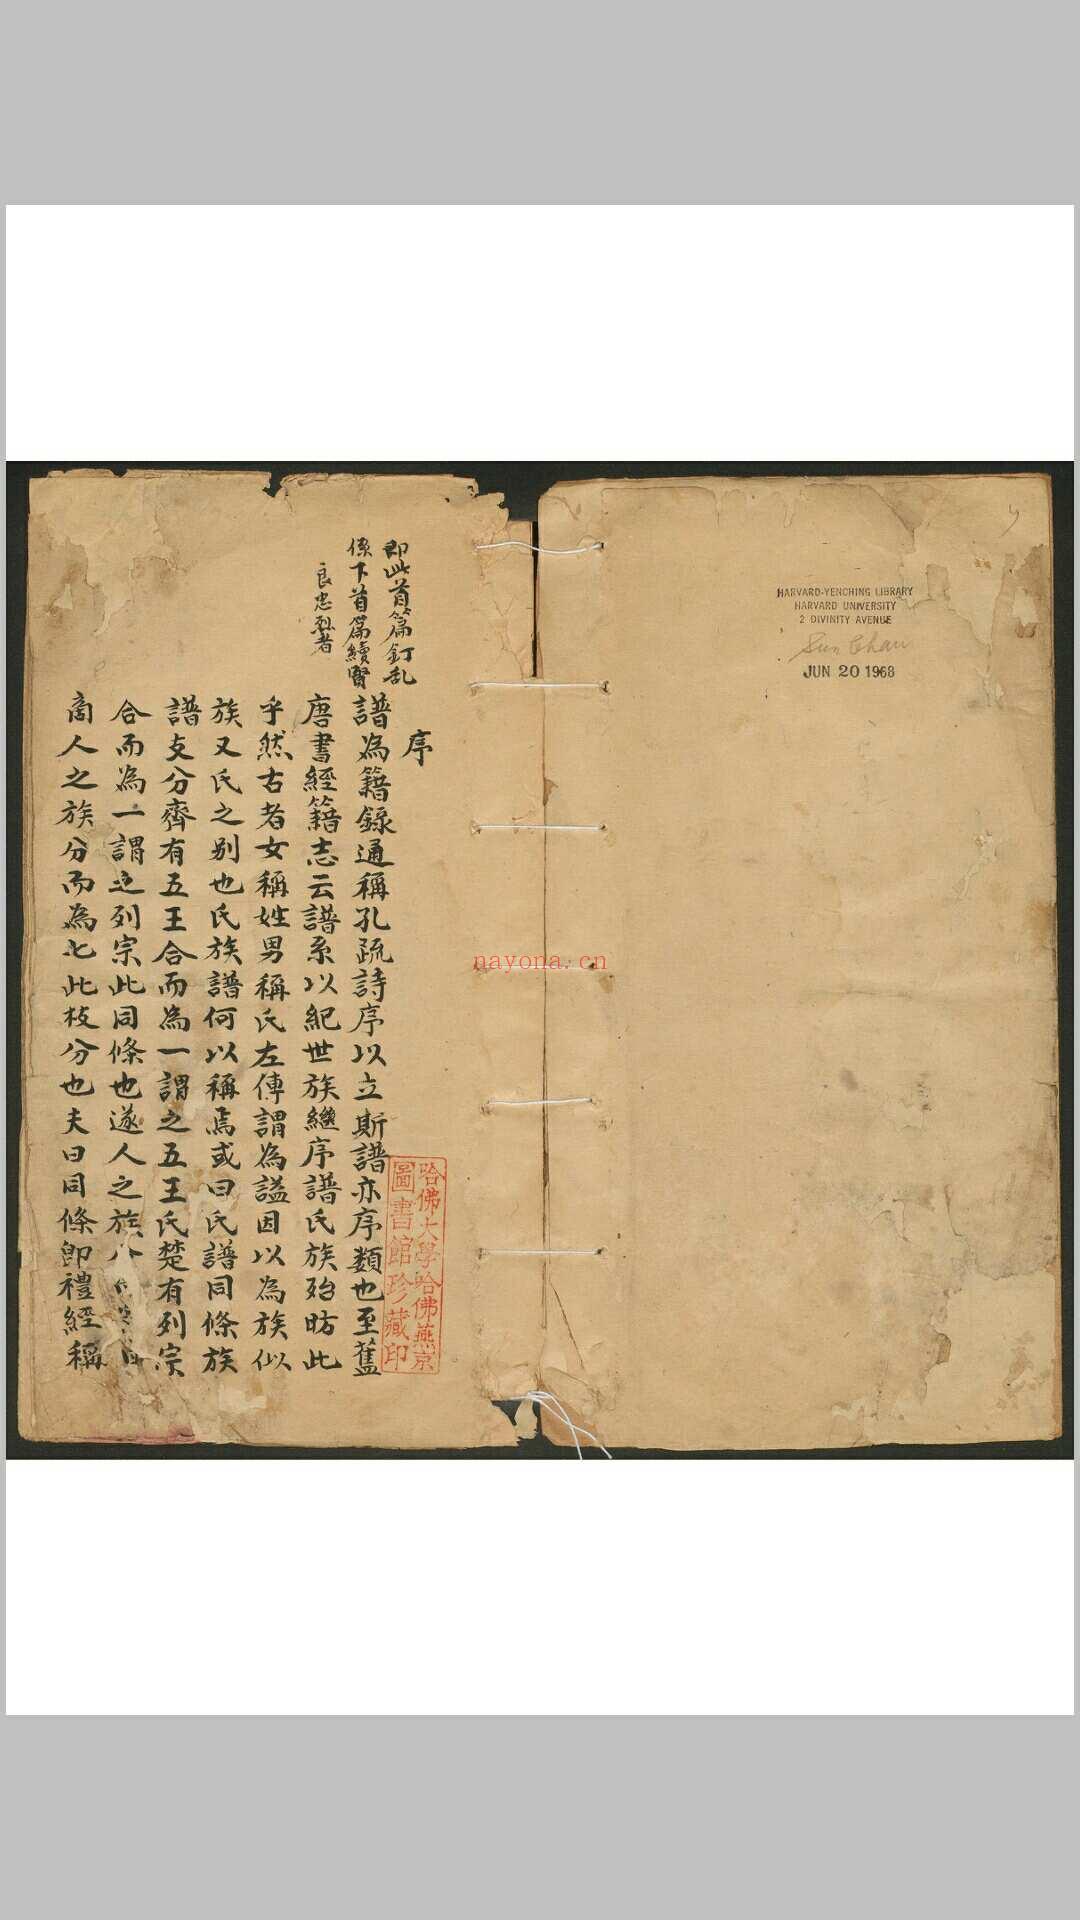 HARVARD-YENCHING LIBRARY
HARVARD UNIVERSITY
2 DIVINITY AVENUE
Sun Chau
JUN 20 1968
即此首篇釘乱
係下首篇續賢
良忠烈者
序
譜為籍錄通稱孔疏詩序以立斯譜亦序類也至舊
唐書經籍志云譜系以紀世族繼序譜氏族殆昉此
乎然古者女稱姓男稱氏左傳謂為謚因以為族似
族又氏之别也氏族譜何以稱焉或曰氏譜同條族
譜支分齊有五王合而為一謂之五王氏楚有列宗
合而為一謂之列宗此同條也遂人之族
商人之族分而為七此枝分也夫曰同條即禮經稱
哈佛大學哈佛燕京
圖書館珍藏印
nayona.cn